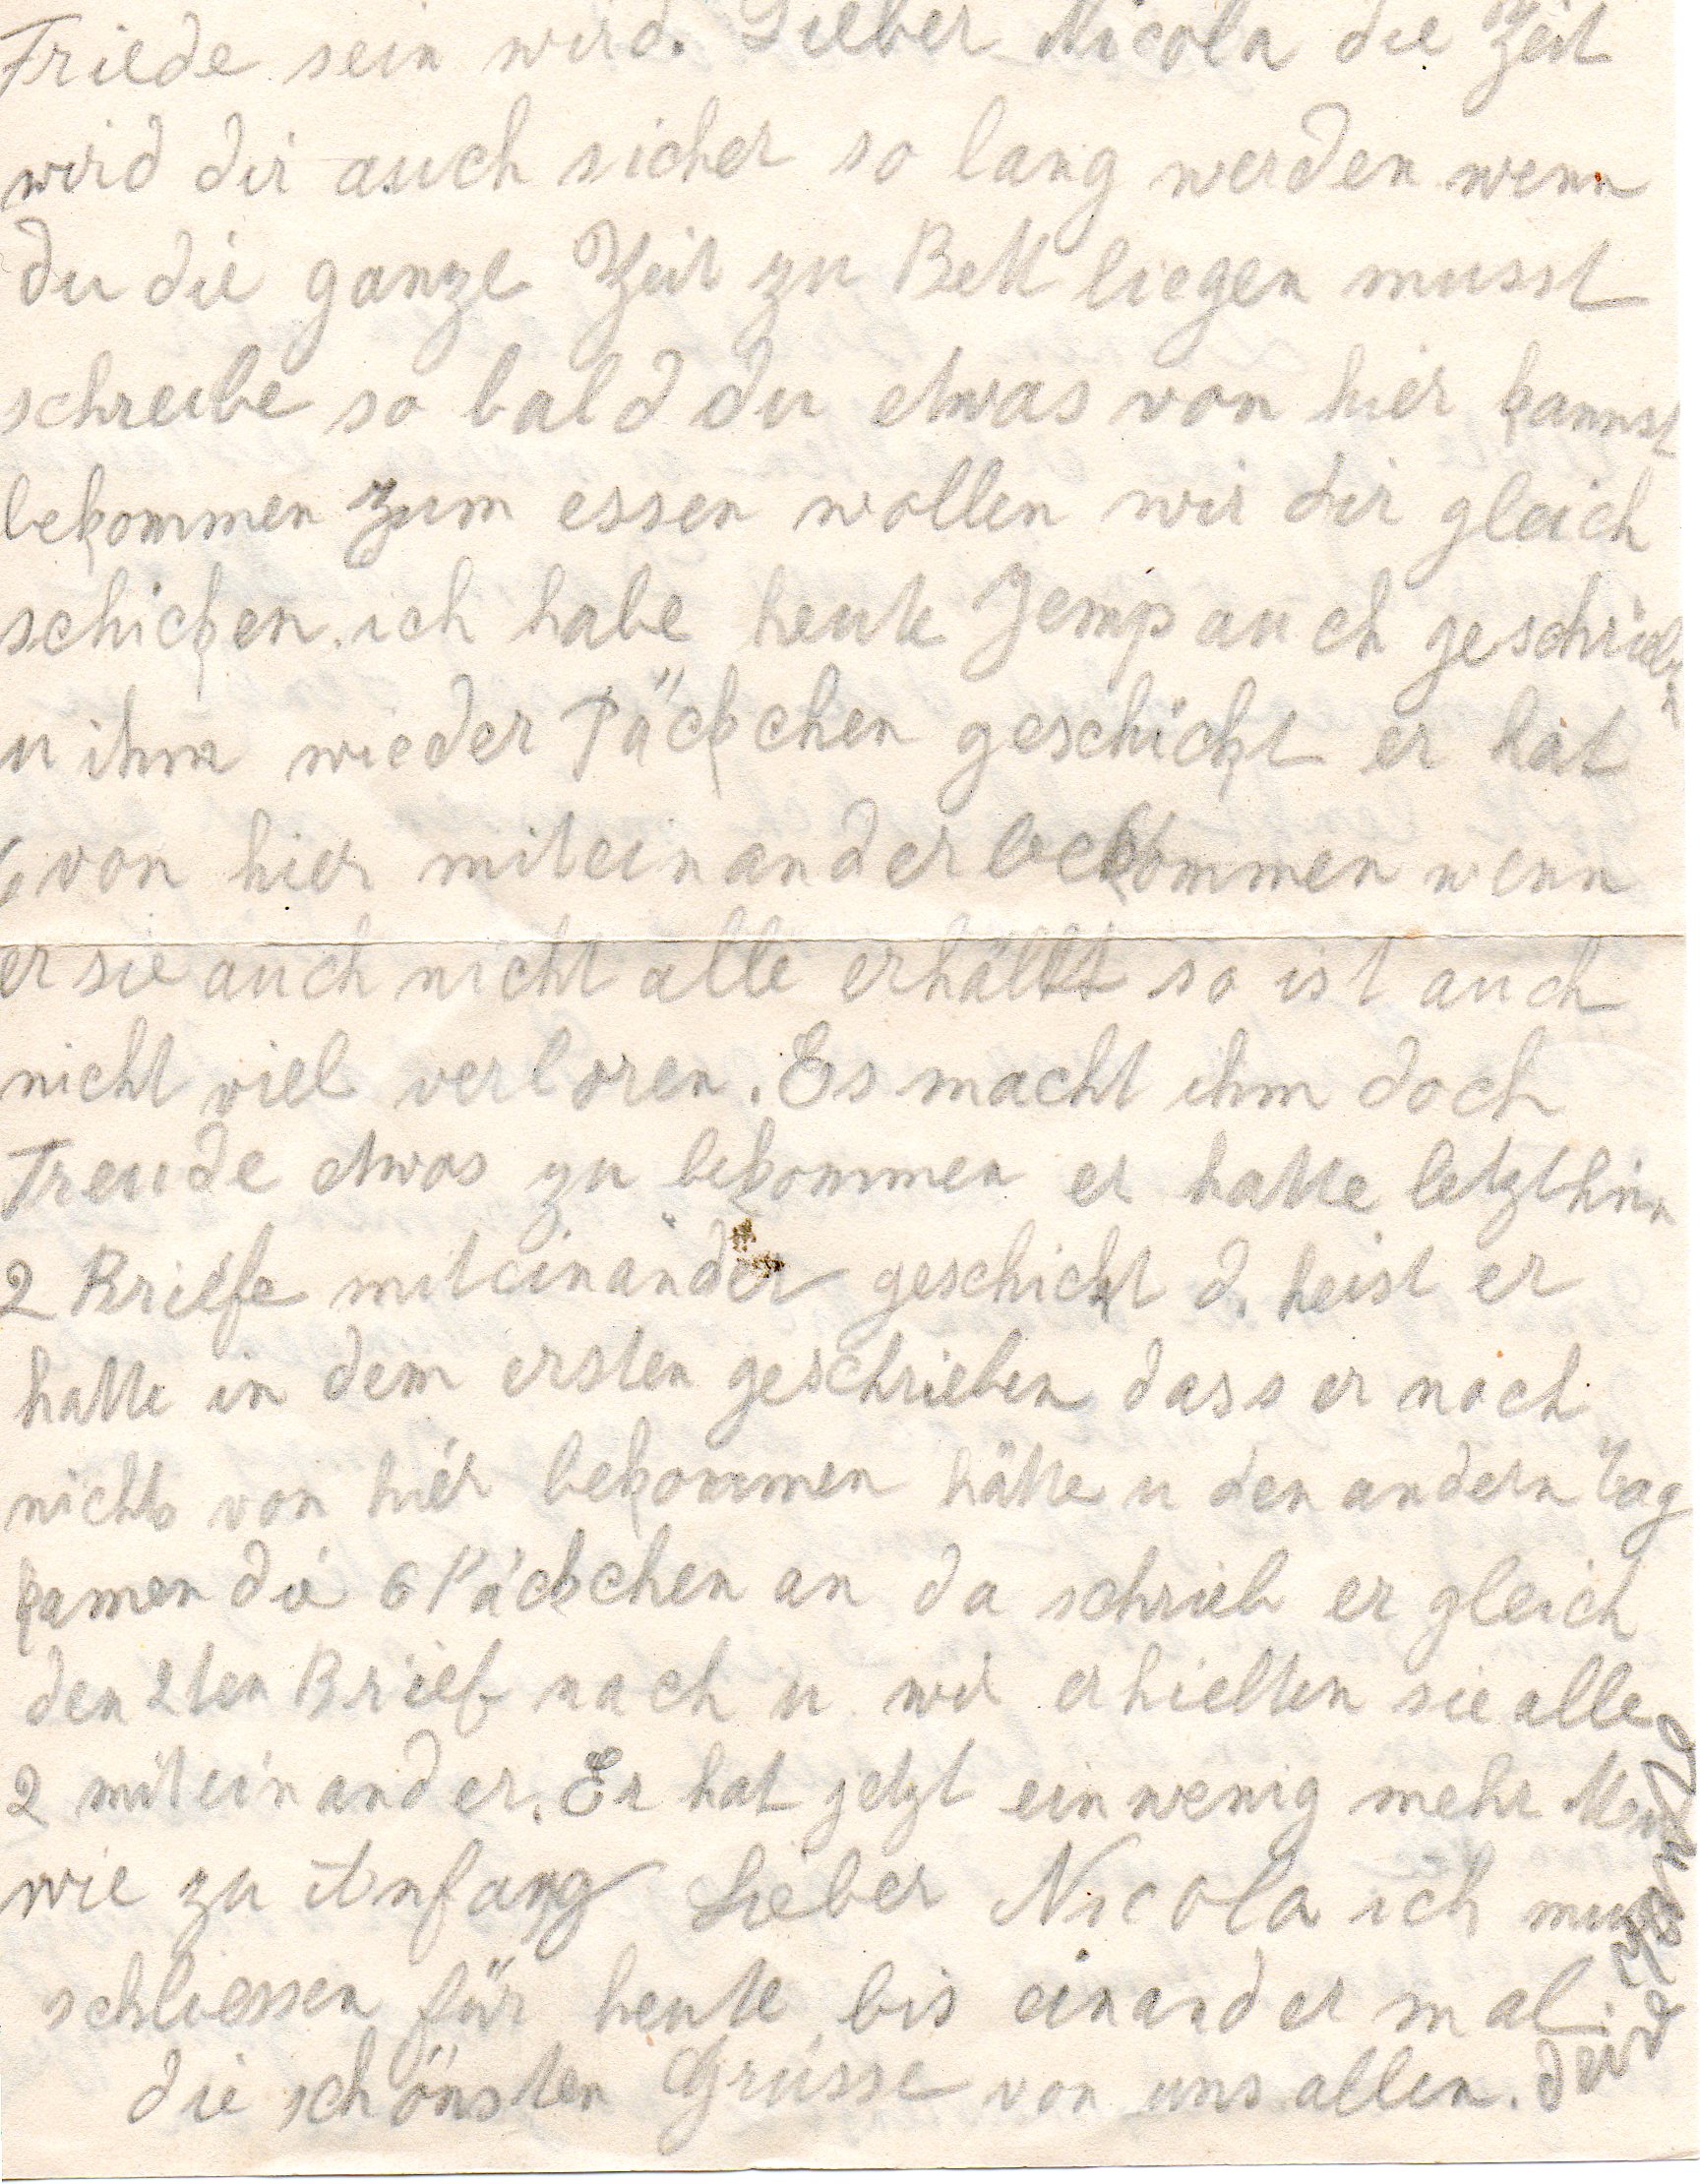 Friede sein wird. Lieber Nicola die Zeit
wird dir auch sicher so lang werden wenn
du die ganze Zeit zu Bett liegen musst
schreibe so bald du etwas von hier kannst
bekommen zum essen wollen wir dir gleich
schicken. ich habe heute Jemp auch geschrieben
u ihm wieder Päckchen geschickt er hat
6 von hier miteinander beckommen wenn
er sie auch nicht alle erhällt so ist auch
nicht viel verloren. Es macht ihm doch
Freude etwas zu bekommen er hatte letzthin
2 Briefe miteinander geschickt d. heist er
hatte in dem ersten geschrieben dass er noch
nichts von hier bekommen hätte u den andern Tag
kamen die 6 Päckchen an da schrieb er gleich
den 2ten Brief nach u wir erhielten sie alle
2 miteinander. Er hat jetzt ein wenig mehr Mut
wie zu Anfang Lieber Nicola ich muss
schliessen für heute bis einander mal
die schönsten Grüsse von uns allen. deine